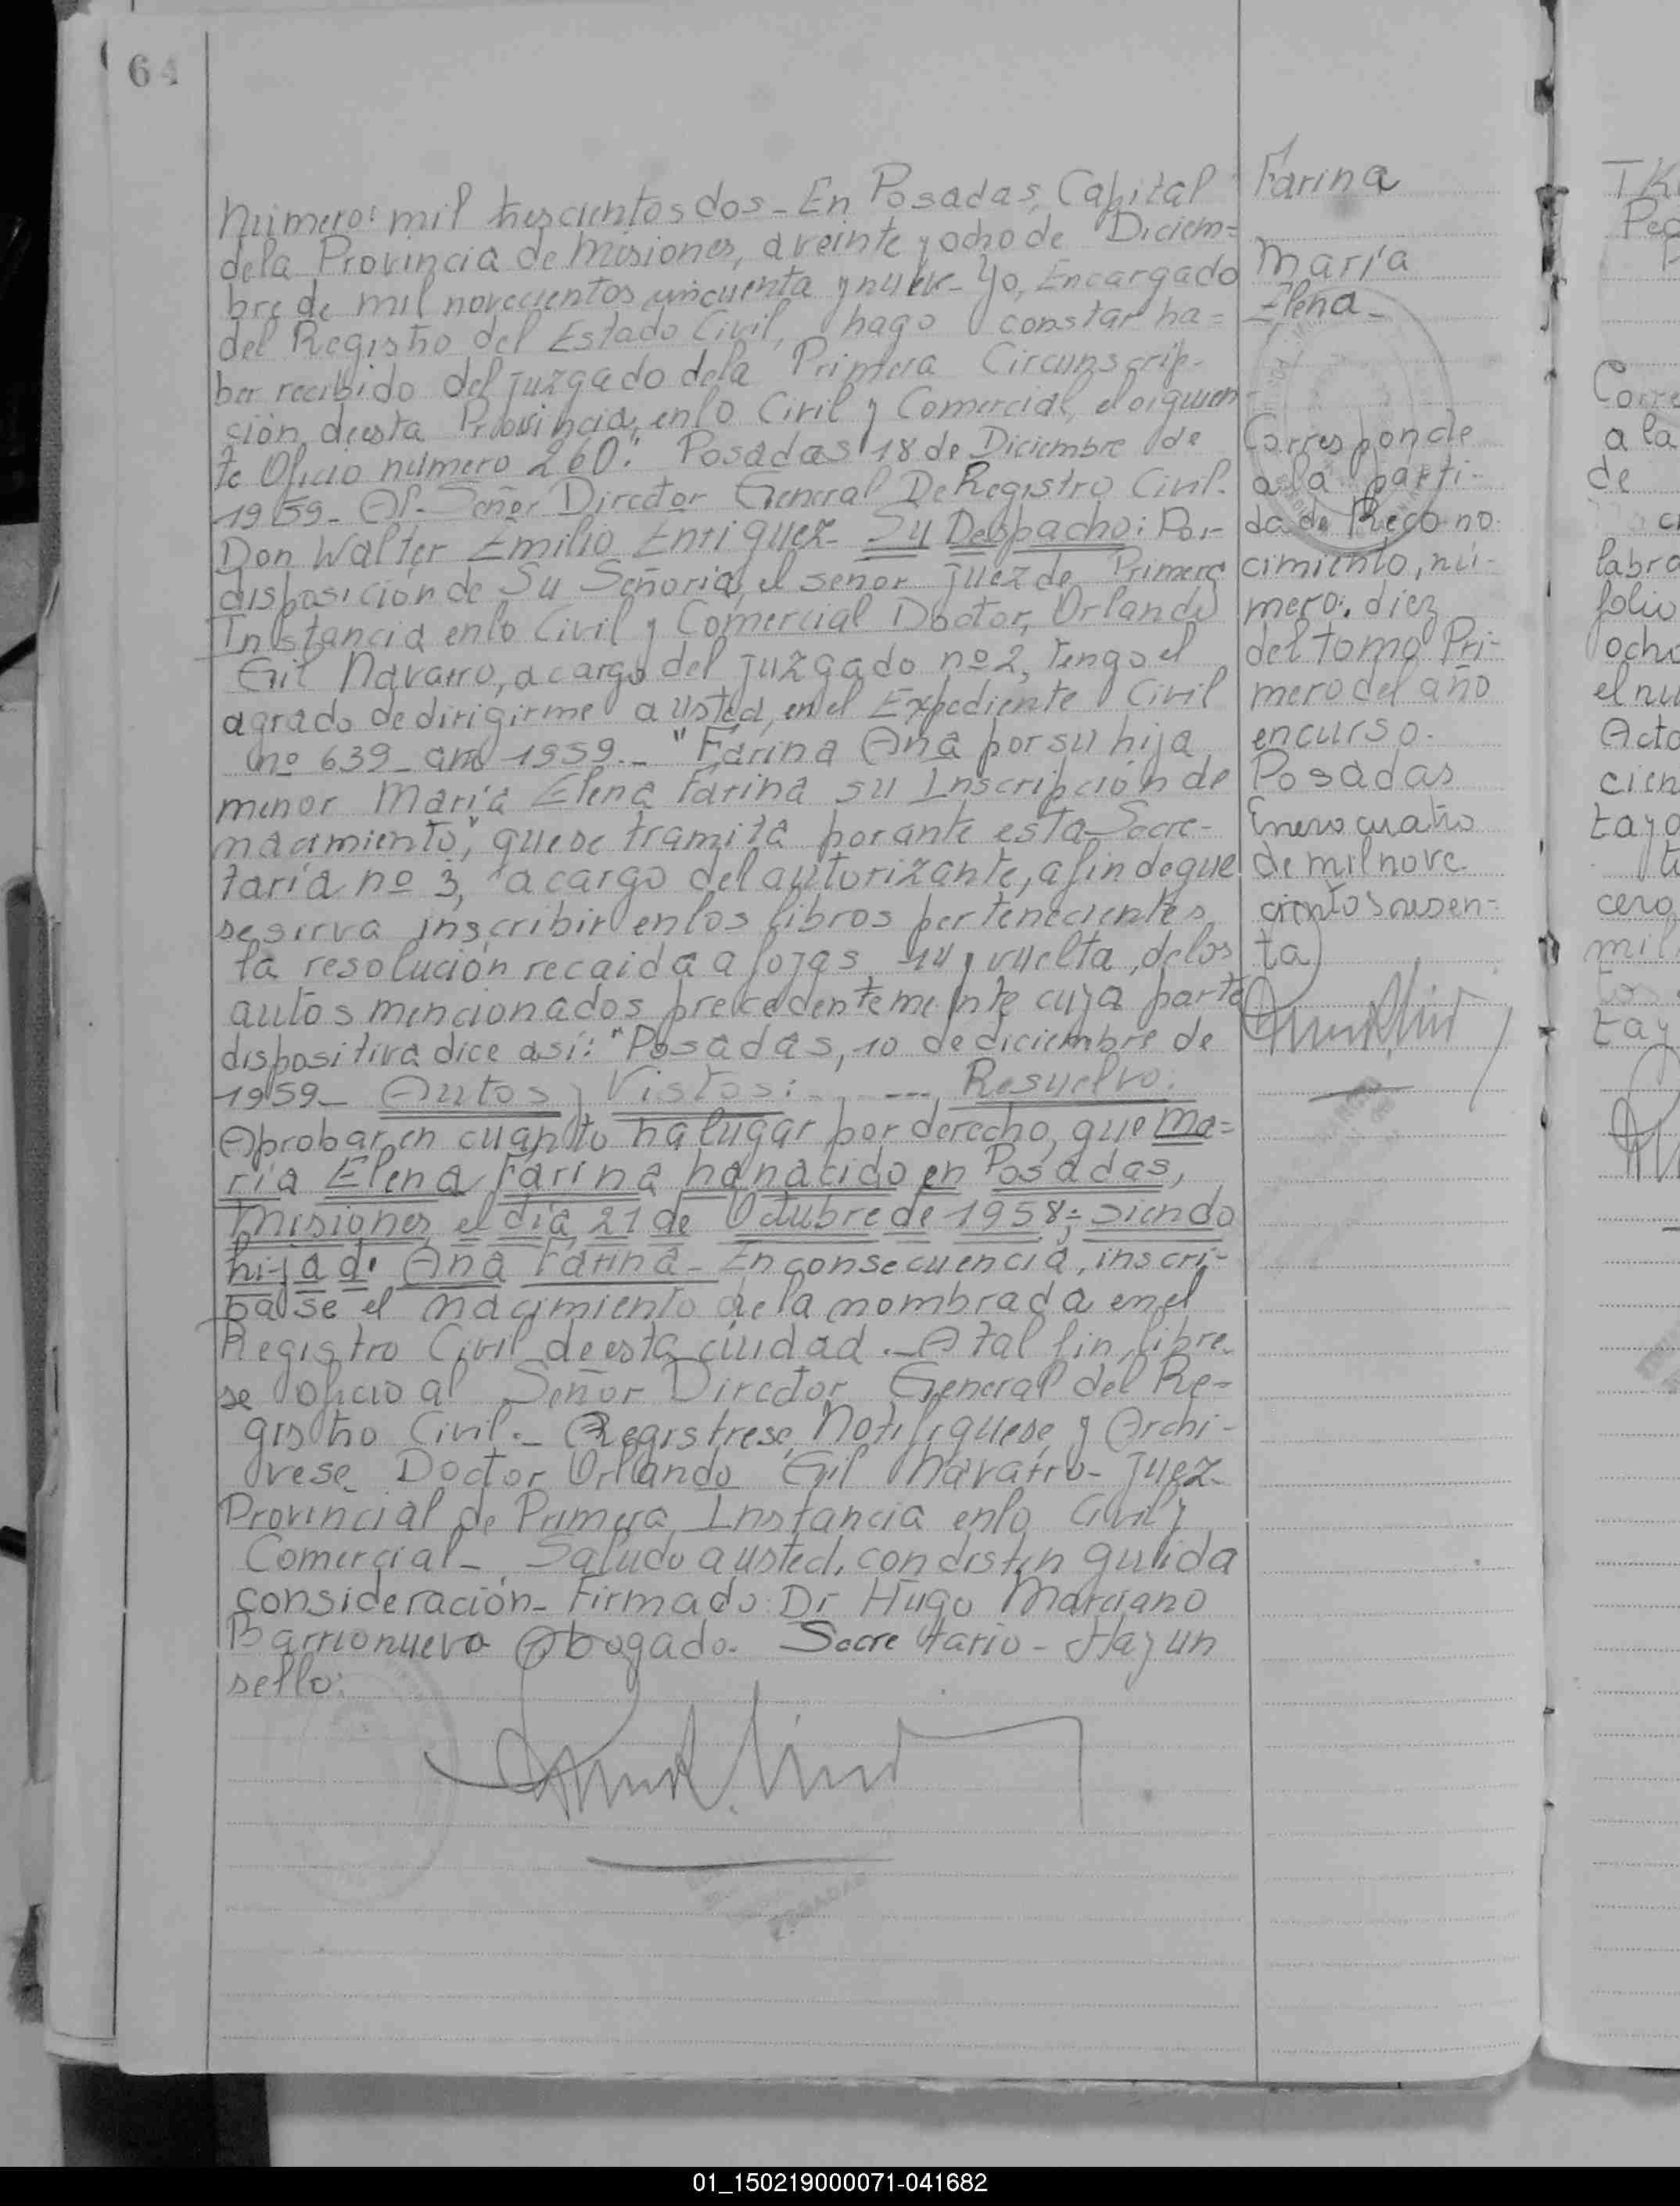 64
Número: mil trescientos dos - En Posadas, Capital
dela Provincia de Misiones, a veinte y ocho de Diciem=
bre de mil novecientos cincuenta y nueve - Yo, Encargado
del Registro del Estado Civil, hago constar ha=
ber recibido del juzgado dela Primera Circunscrip-
ción, deesta Provincia, enlo Civil y Comercial, elsiguien
te Oficio número 260: "Posadas 18 de Diciembre de
1959 - Al - Señor Director General De Registro Civil -
Don Walter Emilio Enriquez - Su Despacho: Por -
disposición de Su Señoria, el señor juez de Primera
Instancia enlo Civil y Comercial Doctor, Orlando
Gil Navarro, a cargo del juzgado nº 2, tengo el
agrado de dirigirme a usted, en el Expediente Civil
nº 639 - año 1959. - "Farina Ana por su hija
menor María Elena Farina su Inscripción de
nacimiento", que se tramita por ante esta Secre-
taría nº 3, a cargo del autorizante, a fin de que
se sirva inscribir en los libros pertenecientes
la resolución recaida a fojas 14 y vuelta, de los
autos mencionados precedentemente cuya parte
dispositiva dice así: "Posadas, 10 de diciembre de
1959 - Autos y Vistos: . . --- Resuelvo:
Aprobar, en cuanto ha lugar por derecho, que Ma=
ría Elena Farina ha nacido en Posadas,
Misiones, el día 21 de Octubre de 1958; siendo
hija de Ana Farina - En consecuencia, inscri-
base el nacimiento de la nombrada en el
Registro Civil de esta ciudad. - A tal fin, libre
se oficio al Señor Director General del Re-
gistro Civil. - Registrese, Notifiquese y Archi-
vese. Doctor Orlando Gil Navarro - Juez -
Provincial de Primera Instancia enlo Civil y
Comercial - Saludo a usted, con distinguida
consideración - Firmado: Dr Hugo Marciano
Barrionuevo Abogado - Secretario - Hay un
sello:
Farina
María
Elena -
Corresponde
a la parti-
da de Recono
cimiento, nú-
mero: diez
del tomo Pri-
mero del año
en curso -
Posadas
Enero cuatro
de mil nove
cientos sesen-
ta
Corre
a la
de
labra
folio
ocho
el nu
Acto
cien
tay o
cero
mil
tos
tay
01_150219000071-041682